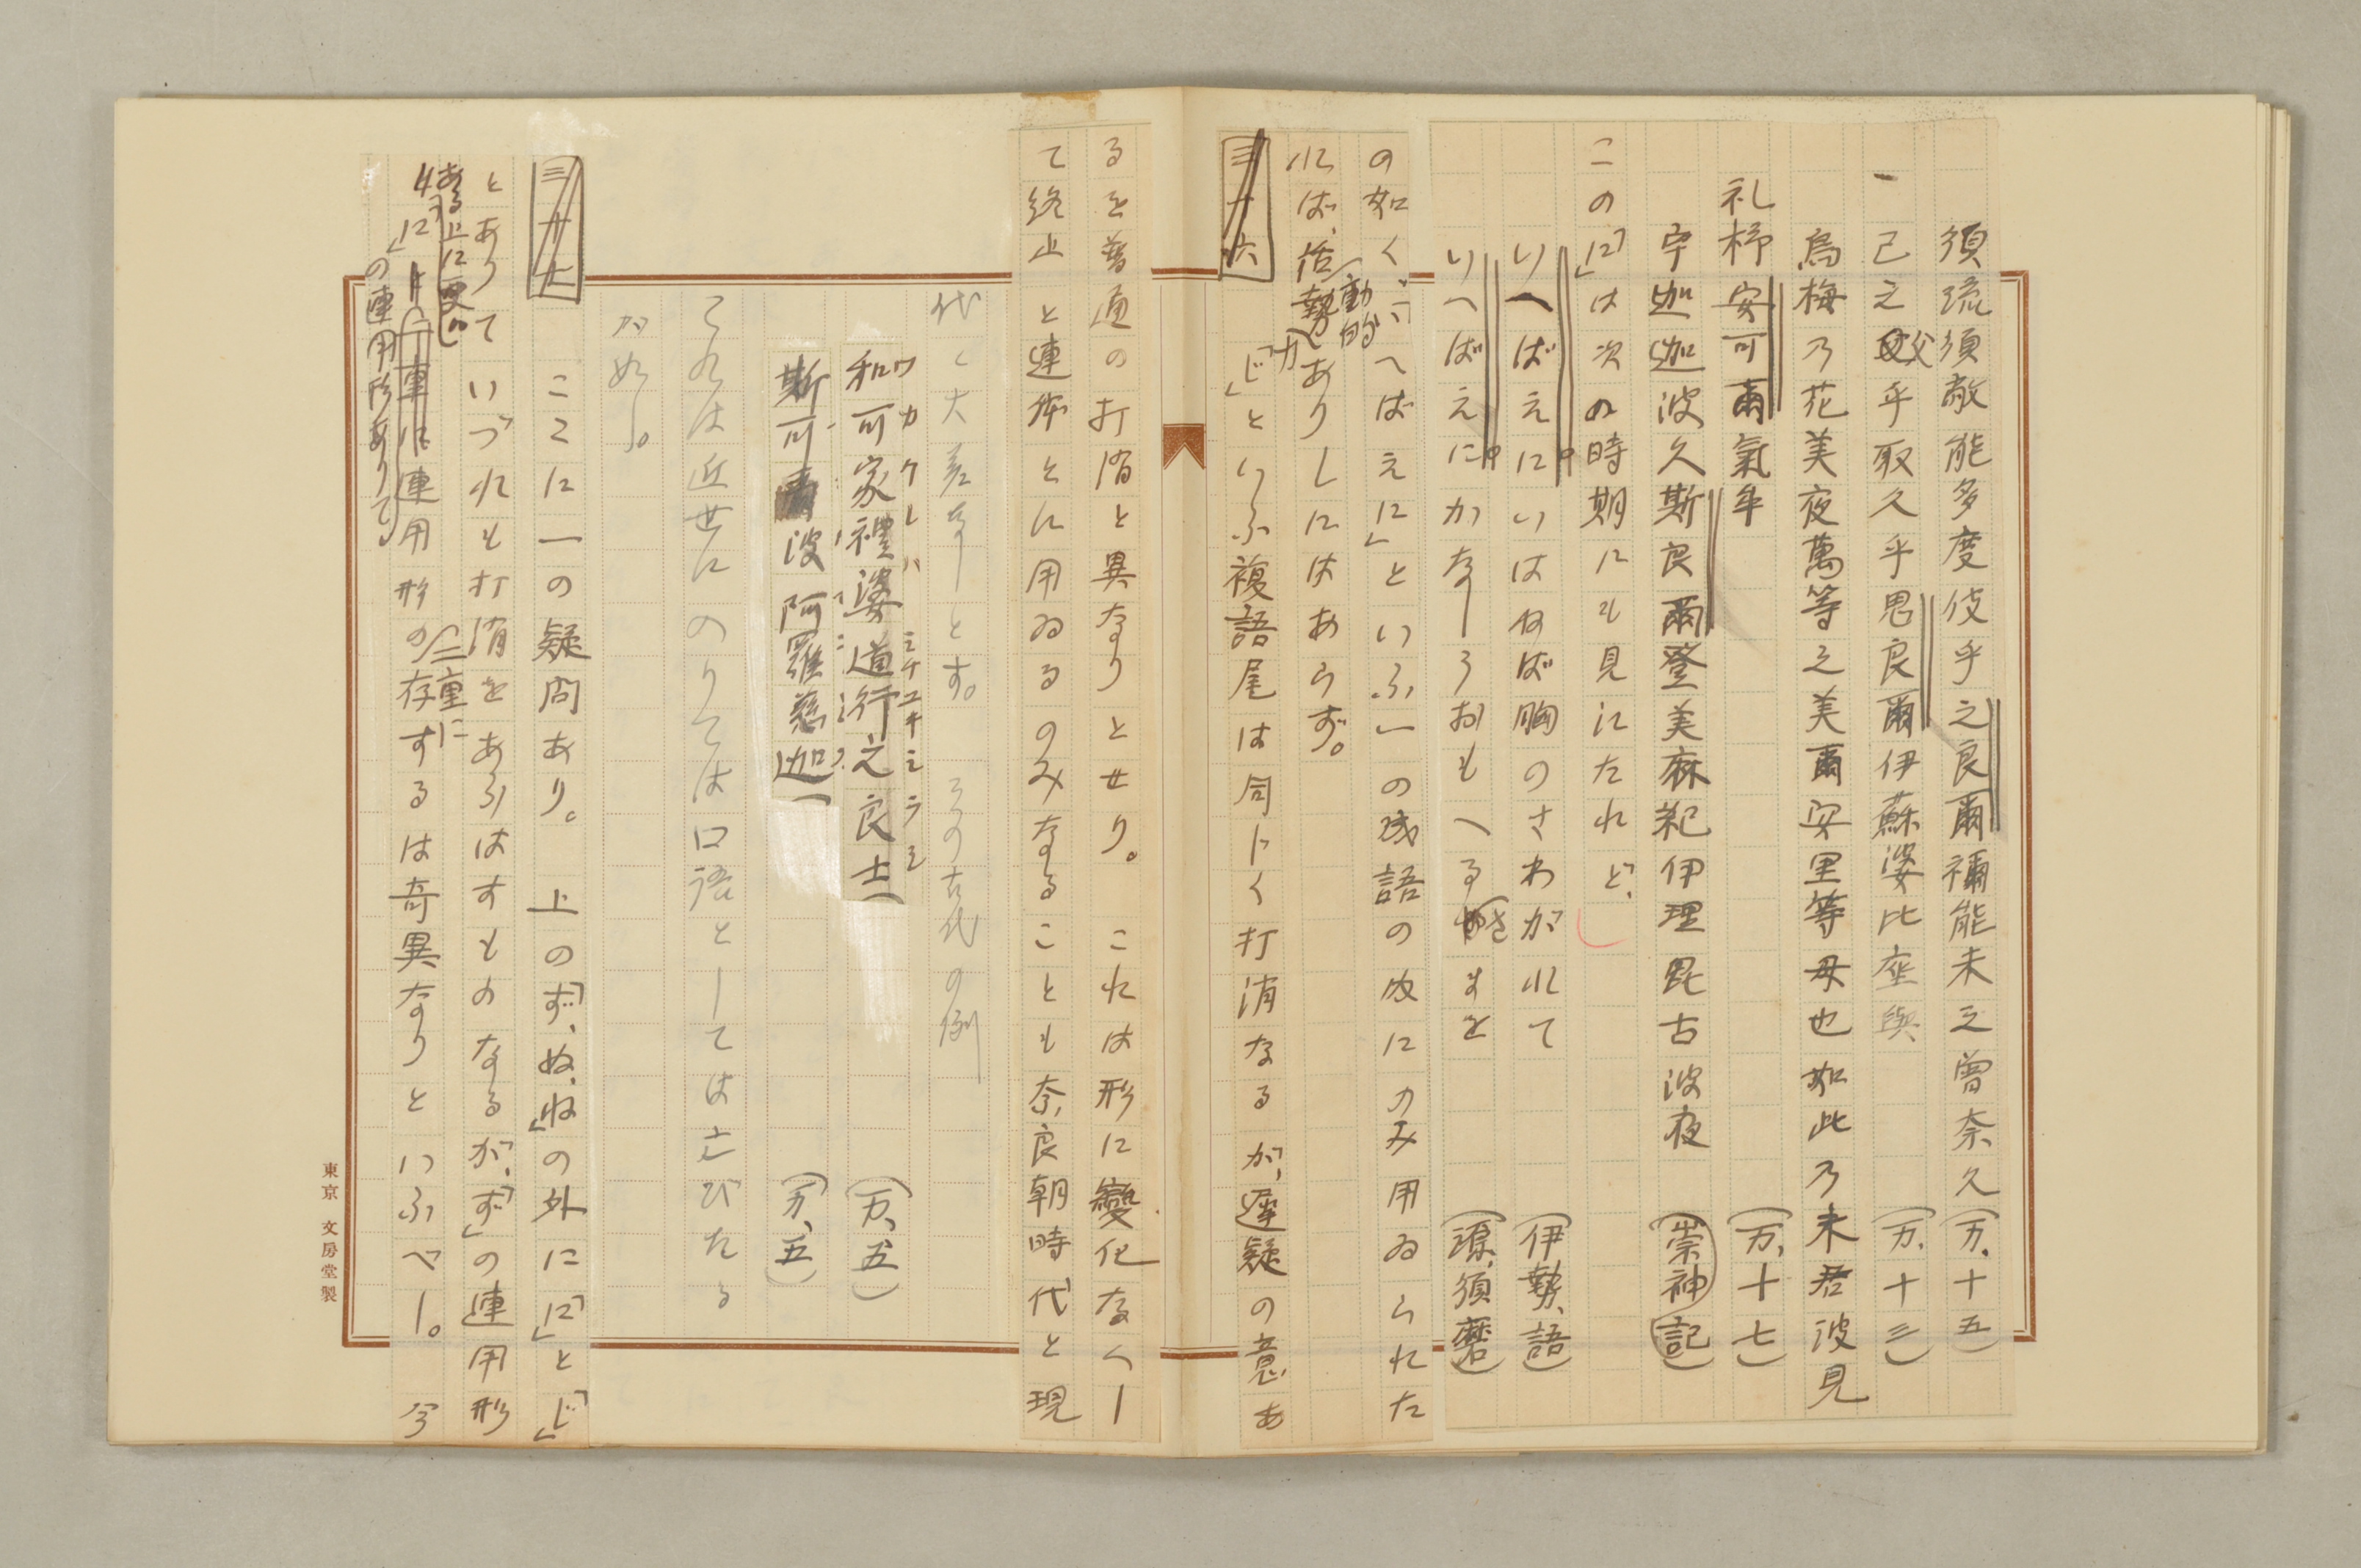 須流須敝能多度伎乎之良爾禰能未之曽奈久（万、十五）
一己之父乎取久乎思良爾伊蘇婆比座與（万、十三）
烏梅乃花美夜萬等之美爾安里等母也如此乃未君波見
礼杼安可爾氣牟（万、十七）
宇迦迦波久斯良爾登美麻紀伊理毘古波夜（崇神記）
この「に」は次の時期にも見にたれど、
いへばえにいはねば胸のさわがれて（伊勢、語）
いへばえにかなしうおもへるさまを（源、須磨）
の如く「いへばえに」といふ一の成語の内にのみ用ゐられた
れば、活動的勢力ありしにはあらず。
三十六　「じ」といふ複語尾は同じく打消なるが、遲疑の意あ
るを普通の打消と異なりとせり。これは形に變化なくし
て終止と連体とに用ゐるのみなることも奈良朝時代と現
代と大差なしとす。その古代の例
和可家禮婆道行之良士（万、五）
ワカケレハミチユキシラシ
斯可波阿羅慈迦（万、五）
これは近世にのりては口語としては亡びたる
がめし。
三十七　ここに一の疑問あり。上の「ず、ぬ、ね」の外に「に」と「じ」
とありていづれも打消をあらはすものなるが、「ず」の連用形
ある上に更に
「に」の連用形ありて
連用形の二重に存するは奇異なりといふべし。今
東京 文房堂製